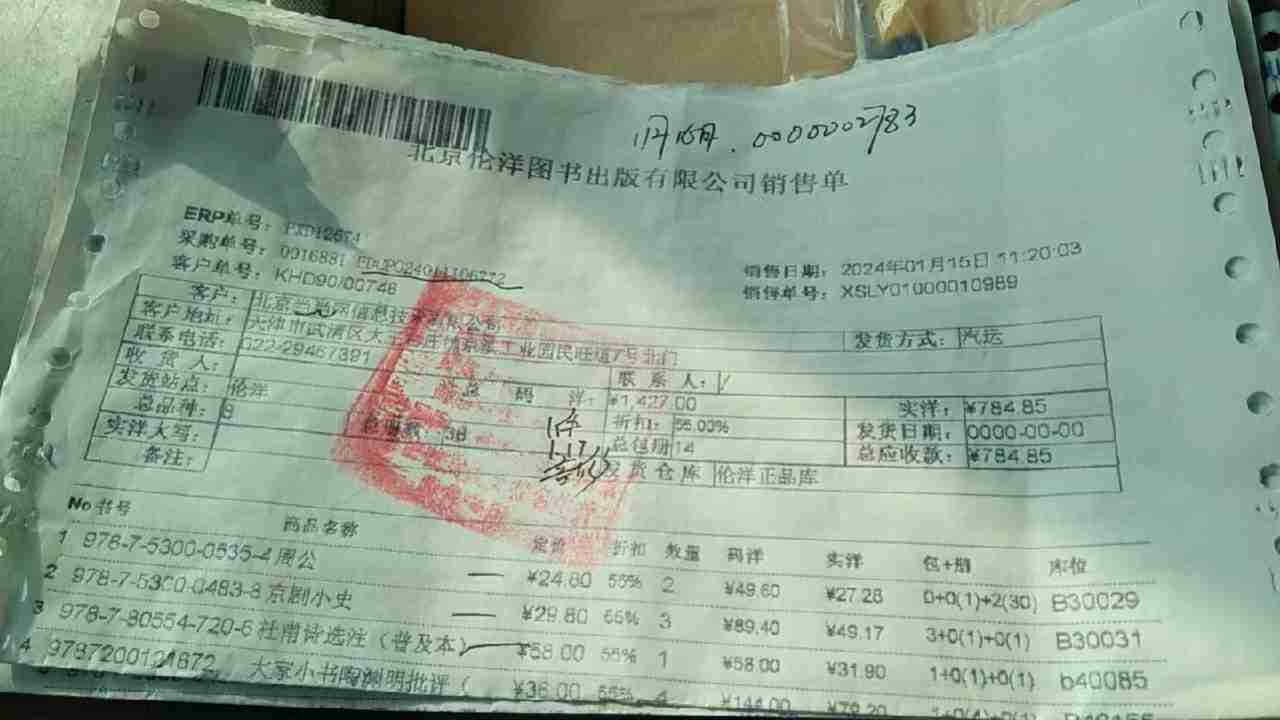 0000002783
北京伦洋图书出版有限公司销售单
ERP单号：
采购单号：0016881 EDUPO24011106272
客户单号：KHD90/00746
销售日期：2024年01月15日 11:20:03
销售单号：XSLY01000010989
客户：北京 网信息技术有限公司
发货方式：汽运
客户地址：天津市武清区大 工业园民旺道7号北门
联系电话：022-29467391
联系人：/
收货人：
总码洋：¥1,427.00
实洋：¥784.85
发货站点：伦洋
折扣：55.00%
发货日期：0000-00-00
总品种：8
总册数：38
总包册 14
总应收款：¥784.85
实洋大写：
发货仓库 伦洋正品库
备注：
1件
1.17
No 书号 商品名称 定价 折扣 数量 码洋 实洋 包+册 库位
1 978-7-5300-0535-4 周公 ¥24.80 55% 2 ¥49.60 ¥27.28 0+0(1)+2(30) B30029
2 978-7-5300-0483-8 京剧小史 ¥29.80 55% 3 ¥89.40 ¥49.17 3+0(1)+0(1) B30031
3 978-7-80554-720-6 杜甫诗选注（普及本） ¥58.00 55% 1 ¥58.00 ¥31.90 1+0(1)+0(1) b40085
4 9787200121872 大家小书陶渊明批评（ ¥36.00 55% 4 ¥144.00 ¥79.20